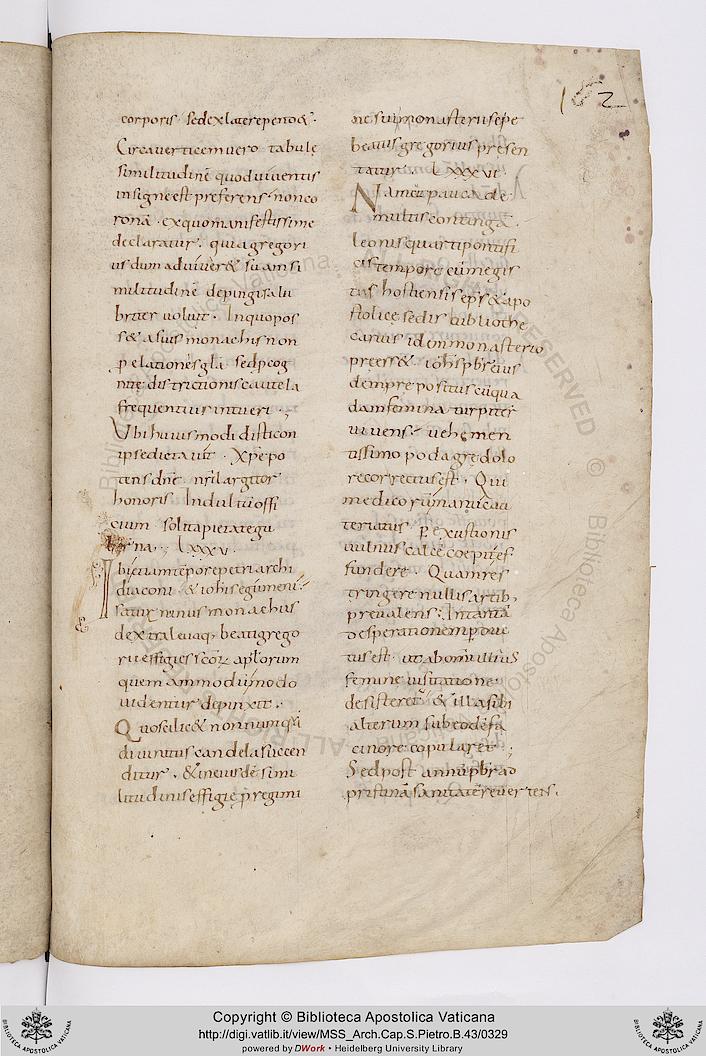 162
corporis · sed ex latere pendet ·
Circa verticem vero tabulę
similitudinē quod viventis
insigne est preferens · non co
ronā · ex quo manifestissime
declaratur · quia gregori
us dum adviveret suam si
militudinē depingi salu
briter voluit · In qua pos
set a suis monachis non
p elationes glā sed p cog
nitę districtionis cautela
frequentius intueri ·;
Ubi huiusmodi disticon
ipse dictavit · Xp̄e po
tens dn̄e nr̄i largitor
honoris Indultū offi
cium solita pietate gu
berna ·; LXXXV ·
Ibi etiam tēpore petri archi
diaconi · & ioh̄is egumeni
satur ninus monachus
dextra levaq; beati grego
rii effigies sc̄orꝝ ap̄lorum
quem ammodū modo
videntur depinxit ·
Quo scilicet non nūmquā
divinitus candela succen
ditur · & in eiusdē simi
litudinis effigie p̄ regimi
ne sui monasterii sepe
beatus gregorius presen
tatur · LXXXVI
Nam et pauca de
multis contingā ·
leonis quarti pontifi
cis tempore cū megis
tus hostiensis ep̄s & apo
stolice sedis bibliothe
carius idem monasterio
preesset · ioh̄s pb̄r eius
dem prepositus cū qua
dam femina turpiter
vivens · vehemen
tissimo podagrę dolo
re correctus est · Qui
medicorū manu cau
teriatus p exustionis
vulnus calce coepit ef
fundere · Quam res
tringere nullis artib;
prevalens · In tantā
desperationem p duc
tus est · ut ab omī illius
femine visitatione
desisteret · & illa sibi
alterum sub eodē fa
cinore copularet ·;
Sed post annū pb̄r ad
pristinā sanitatē revertens ·
Copyright © Biblioteca Apostolica Vaticana
http://digi.vatlib.it/view/MSS_Arch.Cap.S.Pietro.B.43/0329
powered by DWork • Heidelberg University Library